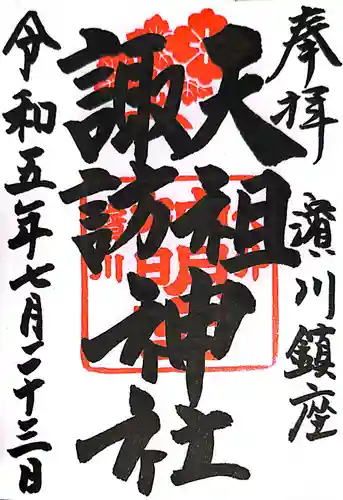 奉拝
濱川鎮座
天祖
諏訪神社
令和五年七月二十三日